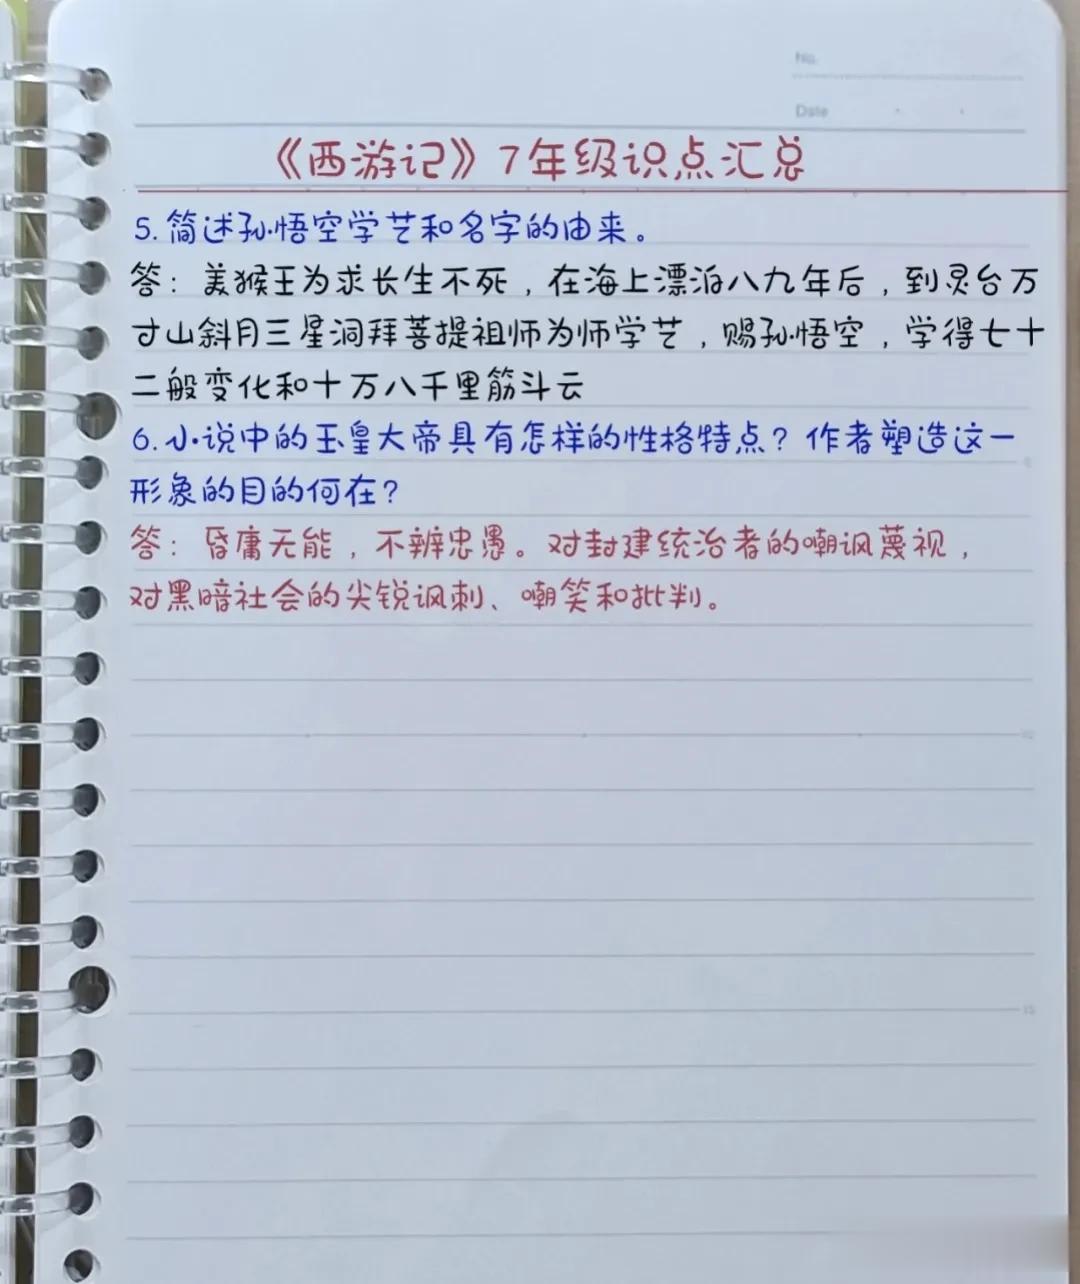 No.
Date
《西游记》7年级识点汇总
5.简述孙悟空学艺和名字的由来。
答：美猴王为求长生不死，在海上漂泊八九年后，到灵台方
寸山斜月三星洞拜菩提祖师为师学艺，赐孙悟空，学得七十
二般变化和十万八千里筋斗云
6.小说中的玉皇大帝具有怎样的性格特点？作者塑造这一
形象的目的何在？
答：昏庸无能，不辨忠愚。对封建统治者的嘲讽蔑视，
对黑暗社会的尖锐讽刺、嘲笑和批判。
15